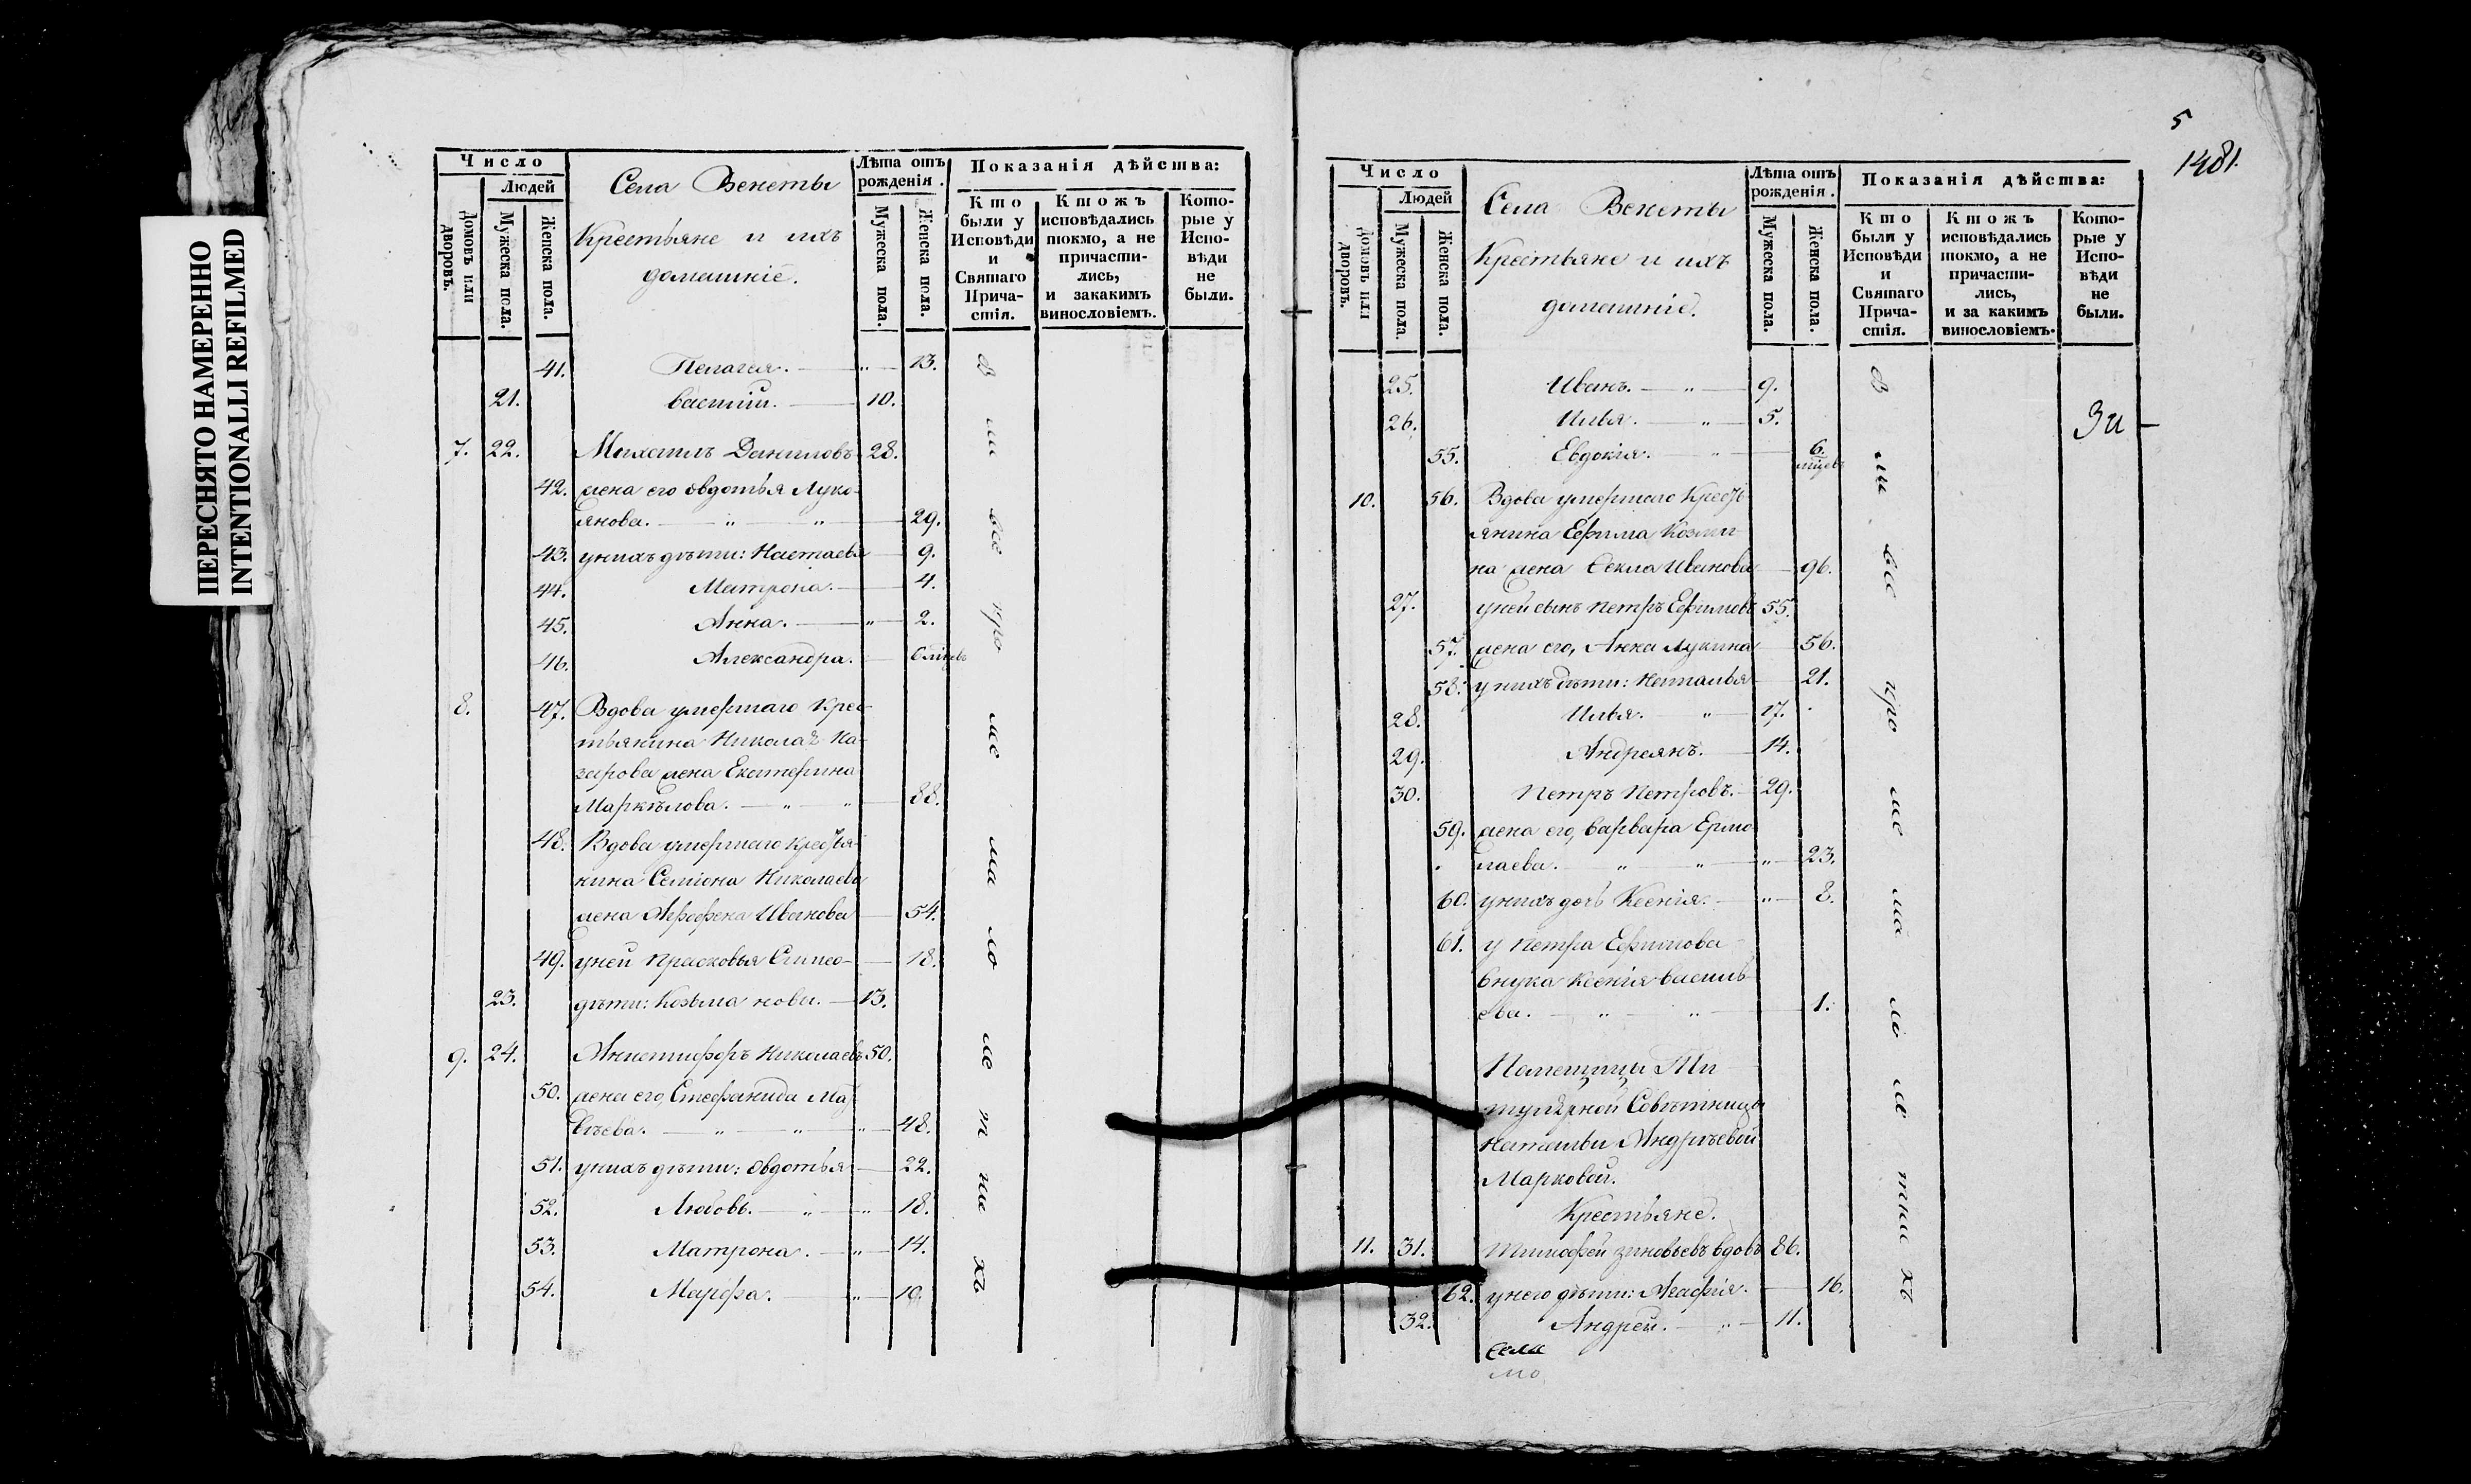 ПЕРЕСНЯТО НАМЕРЕННО
INTENTIONALLI REFILMED
Число
Людей
Домовъ или дворовъ.
Мужеска пола.
Женска пола.
Села Венеты
Крестьяне и ихъ
домашніе.
Лѣта отъ рожденія.
Мужеска пола.
Женска пола.
Показанія дѣйства:
Кто были у Исповѣди и Святаго Причастія.
Ктожъ исповѣдались токмо, а не причастились, и закакимъ винословіемъ.
Которые у Исповѣди не были.
41. Пелагея. — „ — 13.
21. Василій. — 10.
7. 22. Михаилъ Даниловъ 28.
42. жена его Овдотья Луко-
янова. — „ — „ — 29.
43. унихъ дѣти: Наталья — 9.
44. Матрона. — 4.
45. Анна. — „ — 2.
46. Александра. —
8. 47. Вдова умершаго Крес-
тьянина Николая На-
зарова жена Екатерина
Маркѣлова. — „ — „ — 88.
48. Вдова умершаго крестья-
нина Семіона Николаева
жена Агрофена Иванова — 54.
49. уней Прасковья Симео- — 18.
23. дѣти: Козьма новы. — 13.
9. 24. Аникифоръ Николаевъ 50.
50. жена его, Стефанида Мат-
вѣева. — „ — „ — „ — 48.
51. унихъ дѣти: Овдотья — 22.
52. Любовь. — „ — „ — 18.
53. Матрона. — „ — 14.
54. Марфа. — „ — 10.
5
1481.
Число
Людей
Домовъ или дворовъ.
Мужеска пола
Женска пола.
Села Венеты
Крестьяне и ихъ
домашніе.
Лѣта отъ рожденія.
Мужеска пола.
Женска пола.
Показанія дѣйства:
Кто были у Исповѣди и Святаго Причастія.
Ктожъ исповѣдались токмо, а не причастились, и за какимъ винословіемъ.
Которые у Исповѣди не были.
25. Иванъ. — „ — 9.
26. Илья. — „ — 5.
55. Евдокія. — „ — 6. мцевъ
10. 56. Вдова умершаго Кресть-
янина Ефима Козми-
на жена Фекла Иванова — 96.
27. уней сынъ Петръ Ефимовъ 55.
57. жена его, Анна Лукина 56.
58. у нихъ дѣти: Наталья 21.
28. Илья. — „ — 17.
29. Андреянъ. — 14.
30. Петръ Петровъ. — 29.
59. жена его, Варвара Ермо-
лаева. — „ — „ — „ — 23.
60. унихъ дочь Ксенія. — „ — 8.
61. у Петра Ефимова
внука Ксенія Василь-
ева. — „ — „ — 1.
Помещицы Ти-
тулярной Совѣтницы
Натальи Андрѣевой
Марковой.
Крестьяне.
11. 31. Тимофей Зиновьевъ вдовъ 86.
62. унего дѣти: Агафія. — 16.
32. Андрей. — „ — 11.
Села